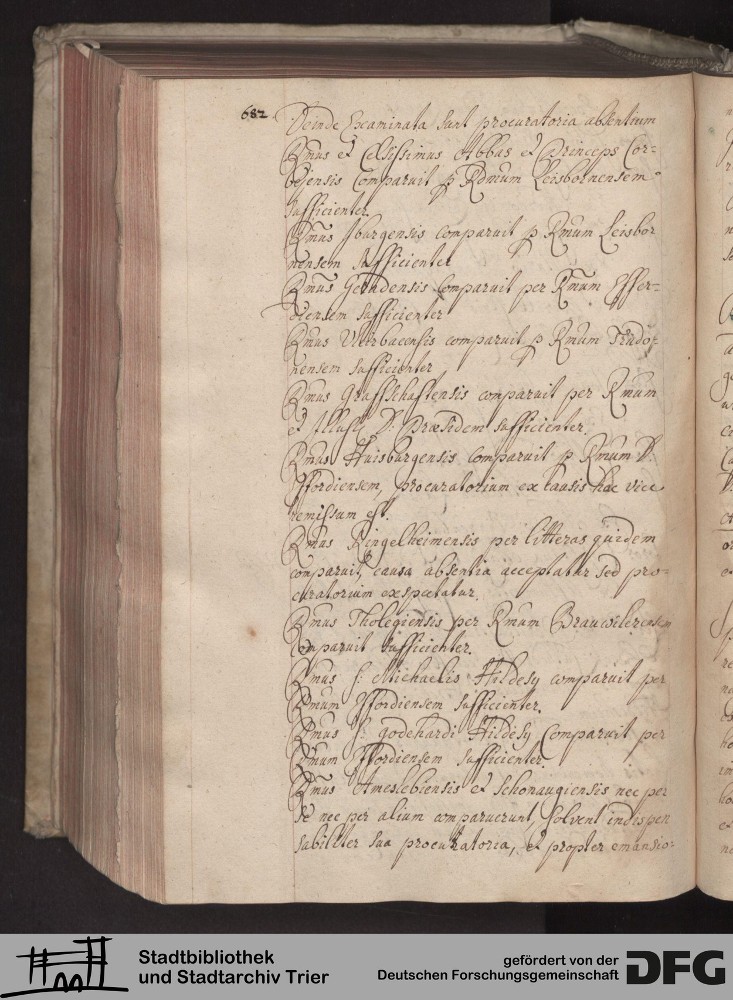 682
Deinde Examinata sunt procuratoria absentium
Rmus et Celsissimus Abbas et Princeps Cor=
bejensis Comparuit p Rdmum Leisbornensem
sufficienter.
Rmus Iburgensis comparuit p Rmum Leisbor
nensem sufficienter
Rmus Gerudensis Comparuit per Rmum Effer=
diensem sufficienter
Rmus comparuit p Rmum Trudo=
nensem sufficienter
Rmus Graffschaftensis comparuit per Rmum
et Illust. D. Præsidem sufficienter.
Rmus Huisburgensis Comparuit p Rmum D.
Effordiensem, procuratorium ex causis hac vice
remissum est.
Rmus Ringelheimensis per litteras quidem
comparuit, causa absentia acceptatur sed pro=
curatorium exspectatur.
Rmus Tholegiensis per Rmum Brauwilerensem
Comparuit sufficienter.
Rmus S. Michaelis Hildesy comparuit per
Rmum Effordiensem sufficienter.
Rmus S. godehardi Hildesy Comparuit per
Rmum Effordiensem sufficienter.
Rmus Ameslebiensis et Schonaugiensis nec per
se nec per alium comparuerunt, solvent indispen
sabiliter sua procuratoria, et propter emansio=
Stadtbibliothek
und Stadtarchiv Trier
gefördert von der
Deutschen Forschungsgemeinschaft
DFG